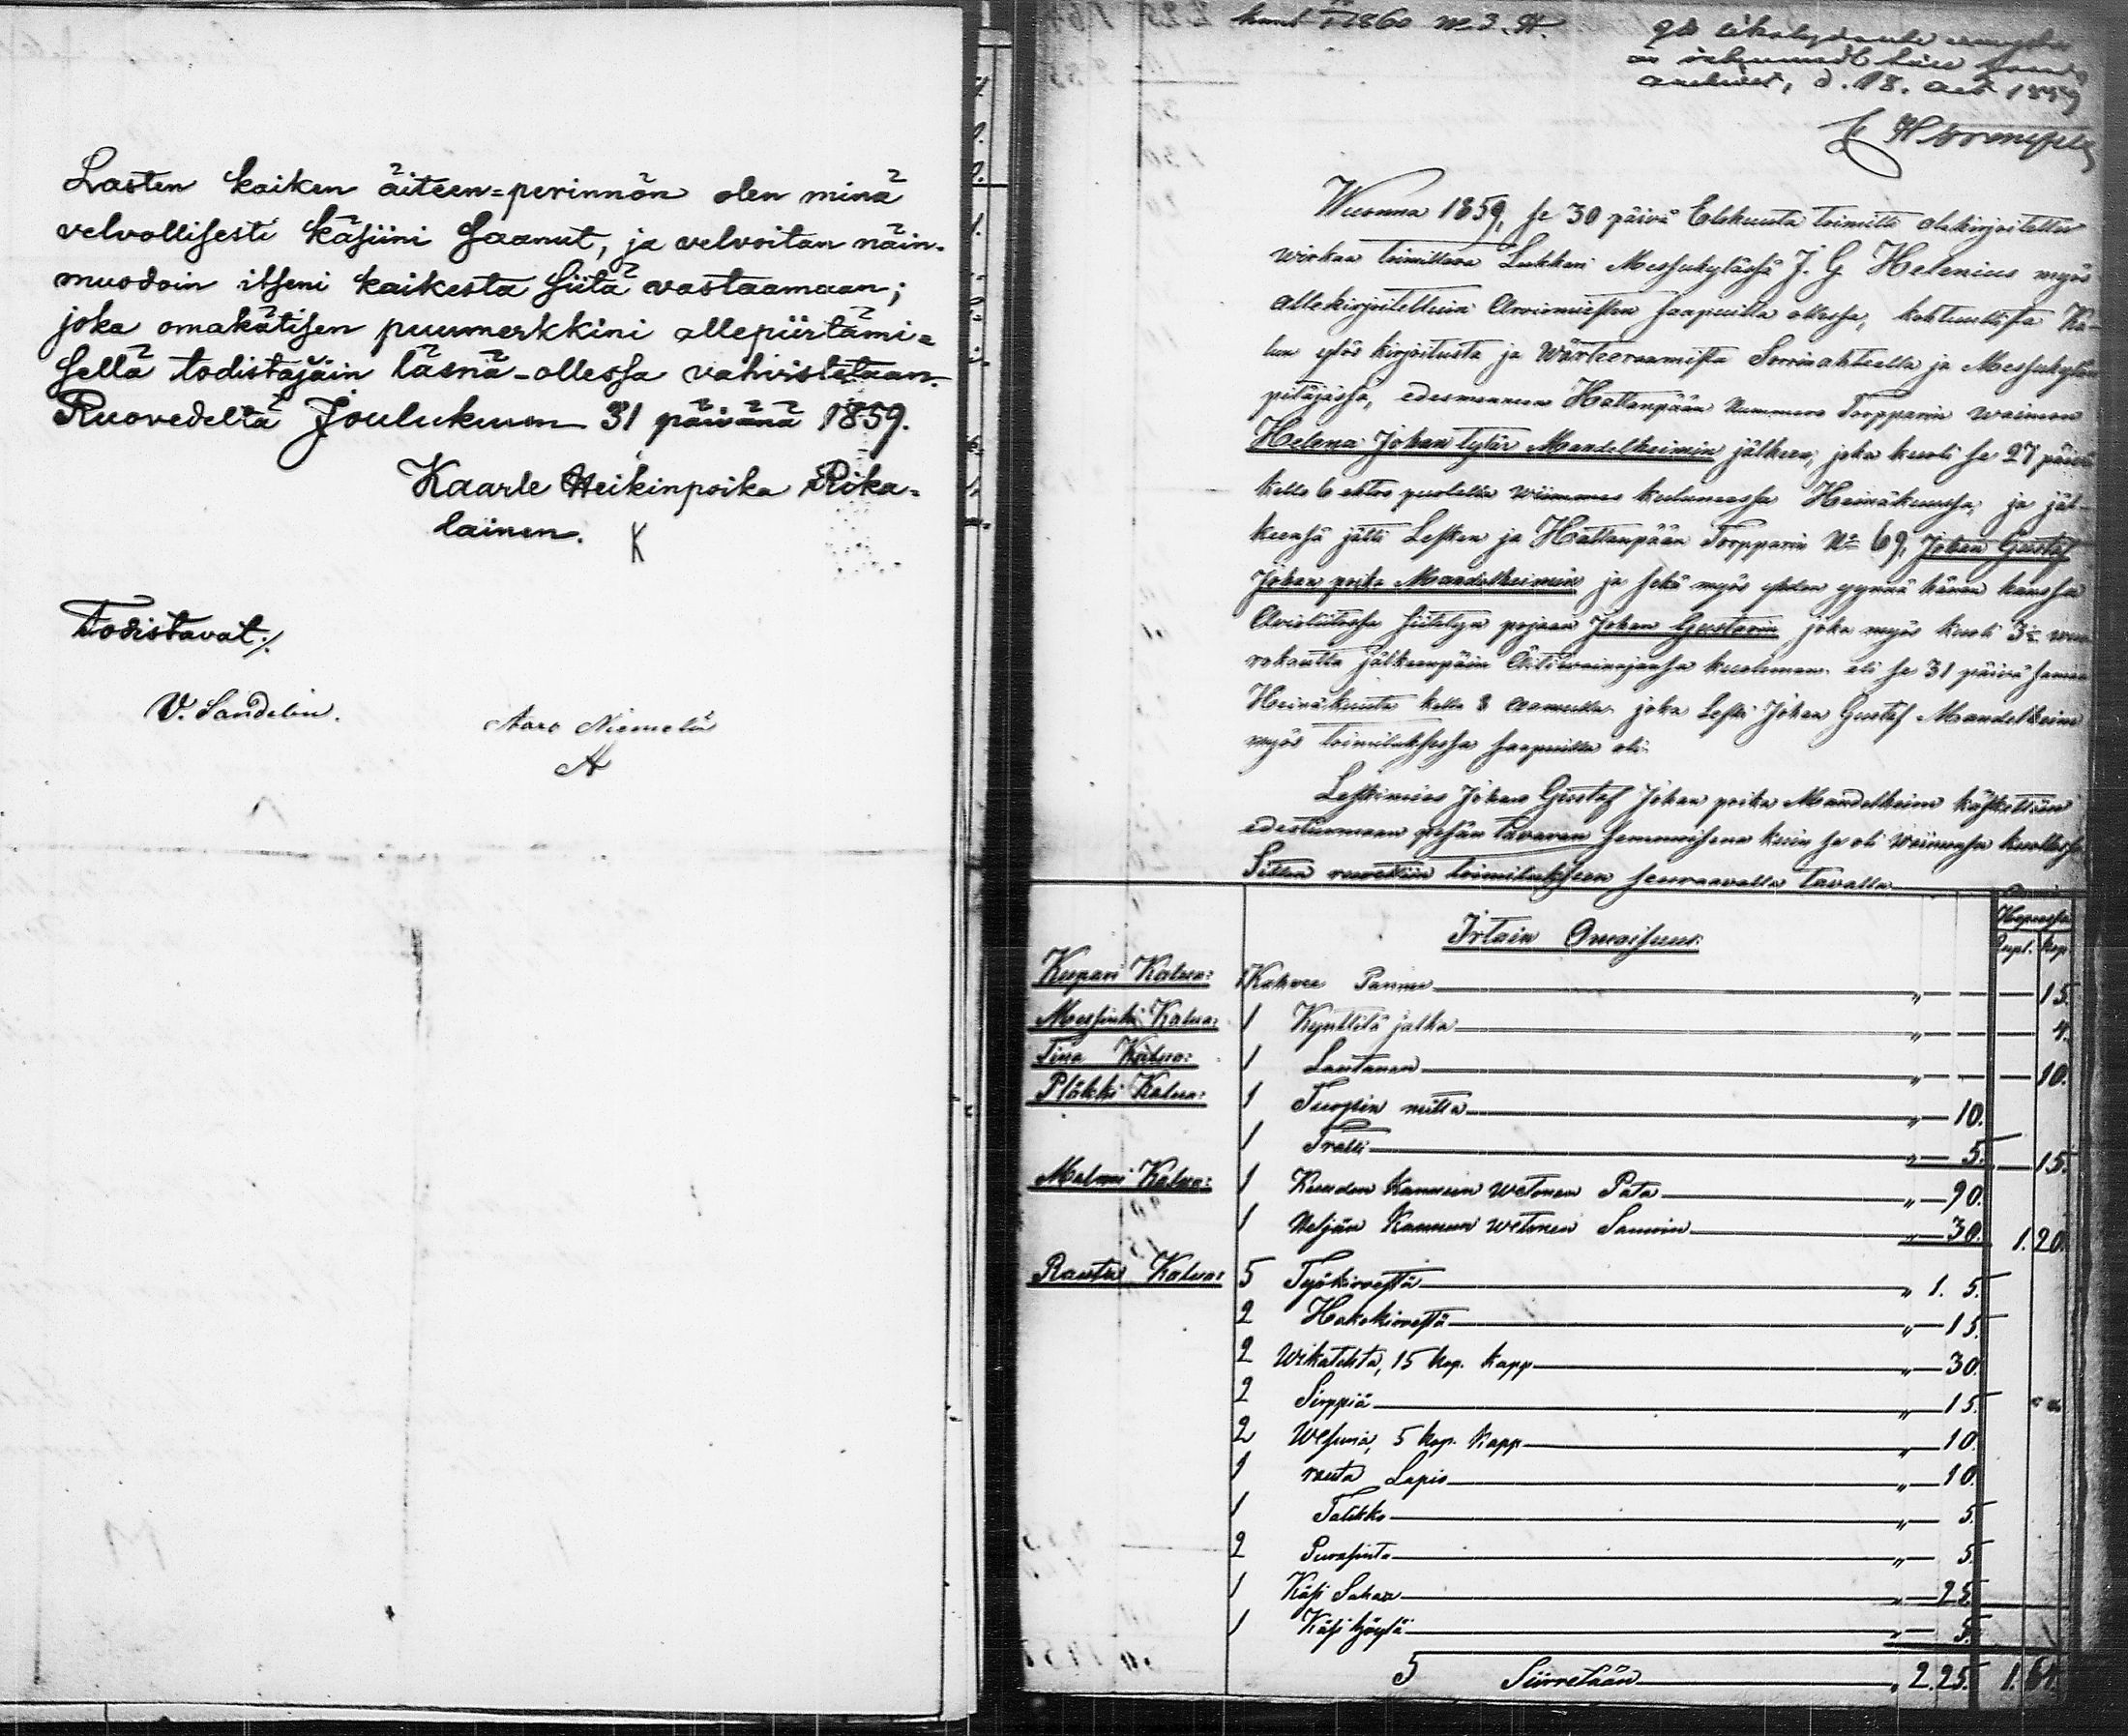 Lasten kaiken äiteen=perinnön olen minä
velvollisesti käsiini saanut, ja velvoitan näin-
muodoin itseni kaikesta siitä vastaamaan;
joka omakätisen puumerkkini allepiirtämi=
sellä todistajain läsnä-ollessa vahvistetaan.
Ruovedeltä Joulukuun 31 päivänä 1859.
Kaarle Heikinpoika Rika=
lainen. K
Todistavat:/.
V. Sandelin. Aaro Niemelä
A
1860 No 3. H.
d. 18. 1859
Wuonna 1859, se 30 päivä Elokuuta toimitti allekirjoitettu
wirkaa toimittava Lukkari Messukylässä J. G. Helenius myös
allekirjoitettuin Arviomiesten saapuilla ollessa, kohtuullista Ka-
lun ylös kirjoitusta ja Wärteeraamista Sorrinahteella ja Messukylän
pitäjässä, edesmenneen Hattanpään Nummero Torpparin waimon
Helena Johan tytär Mandelheimin jälkeen, joka kuoli se 27 päivä
kello 6 ehtoo puolella wiimmes kuluneessa Heinäkuussa, ja jäl-
keensä jätti Lesken ja Hattanpään Torpparin No 69, Johan Gustaf
Johan poika Mandelheimin ja sekä myös yhden ynnä hänen kanssa
Aviolitossa siitetyn pojan Johan Gustavin joka myös kuoli 3
rokautta jälkeenpäin Äitivainajansa kuoleman eli se 31 päivä samaa
Heinäkuuta kello 8 aamulla joka Leski Johan Gustaf Mandelheim
myös toimituksessa saapuilla oli.
Leskimies Johan Gustaf Johan poika Mandelheim käskettiin
edestuomaan pesän tavaran semmoisena kuin se oli waimonsa kuollessa
Sitten ruvettiin toimitukseen seuraavalla tavalla
Irtain Omaisuus. Hopeassa
Rupl. Kop.
Kupari Kalua: 1 Kahvee Pannu „ — 15.
Messinki Kalua: 1 Kynttilä jalka „ — 4.
Tina Kalua: 1 Lautanen „ — 10.
Pläkki Kalua: 1 Tuopin mitta „ — 10.
1 Tratti „ — 5. — 15.
Malmi Kalua: 1 Kuuden Kannun wetonen Pata „ — 90.
1 Neljän Kannun wetonen Sama „ — 30. 1. 20.
Rauta Kalua: 5 Työkirvestä „ 1. 5.
2 Hakokirvestä „ — 15.
2 Wikatehta, 15 kop. kapp „ — 30.
2 Sirppiä „ — 15.
2 Wesuria, 5 kop. kapp „ — 10.
1 rauta Lapio „ — 10.
1 Talikko „ — 5.
2 Purasinta „ — 5.
1 Käsi Saha „ — 25.
1 Käsi höylä „ — 5.
Siirretään „ 2. 25. 1. 64.